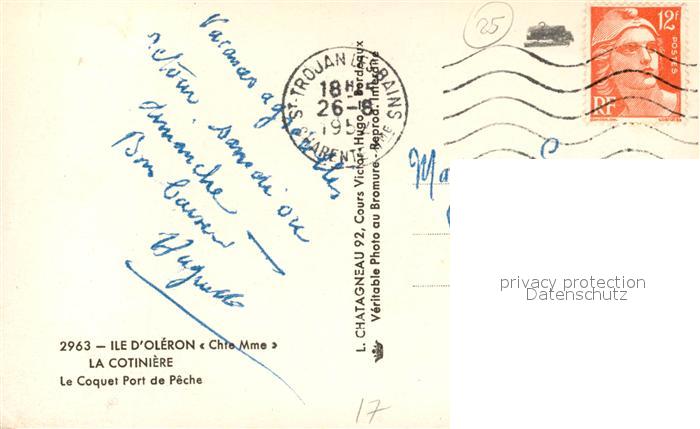 Vacances agréables
retour samedi ou
dimanche —
Bon baiser
Huguette
2963 — ILE D'OLÉRON « Chte Mme »
LA COTINIÈRE
Le Coquet Port de Pêche
17
L. CHATAGNEAU 92, Cours Victor Hugo - Bordeaux
Véritable Photo au Bromure - Reprod. Interdite
ST TROJAN LES BAINS
18H
26-8
195
CHARENTE MME
25
12F
POSTES
RF
Ma
privacy protection
Datenschutz